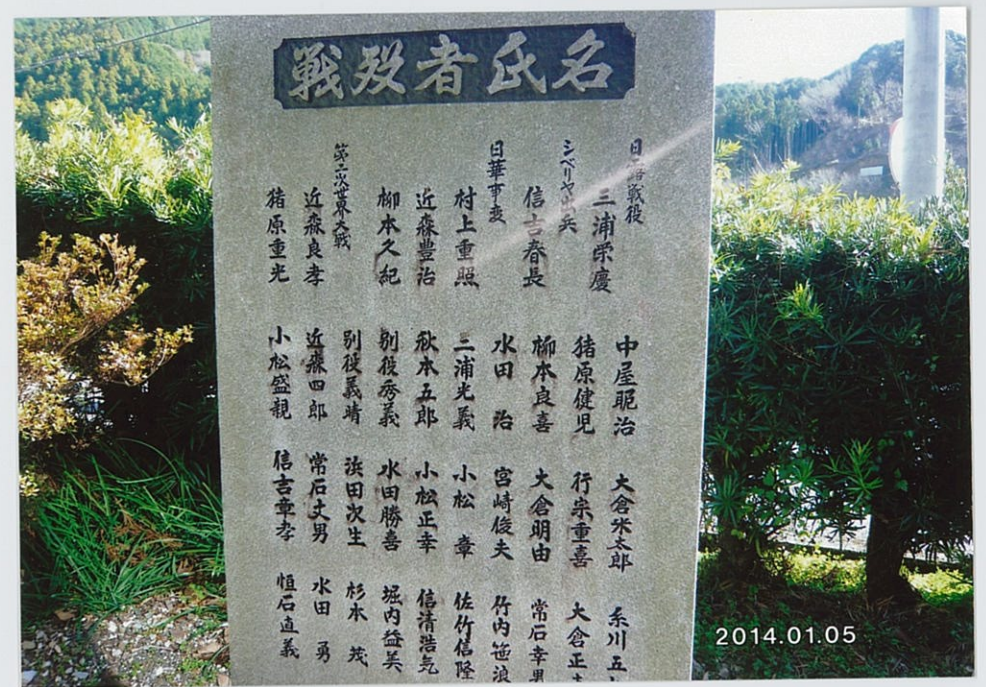 戦歿者氏名
日露戦役
三浦栄慶
シベリヤ出兵
信吉春長
日華事変
村上重照
近森豊治
柳本久紀
第二次世界大戦
近森良孝
猪原重光
中屋昵治
猪原健児
柳本良喜
水田 治
三浦光義
秋本五郎
別役秀義
別役義晴
近森四郎
小松盛親
大倉米太郎
行宗重喜
大倉明由
宮崎俊夫
小松 章
小松正幸
水田勝喜
浜田次生
常石丈男
信吉章孝
糸川五
大倉正
常石幸男
竹内笹浪
佐竹信隆
信清浩気
堀内益美
杉本 茂
水田 勇
恒石直義
2014.01.05